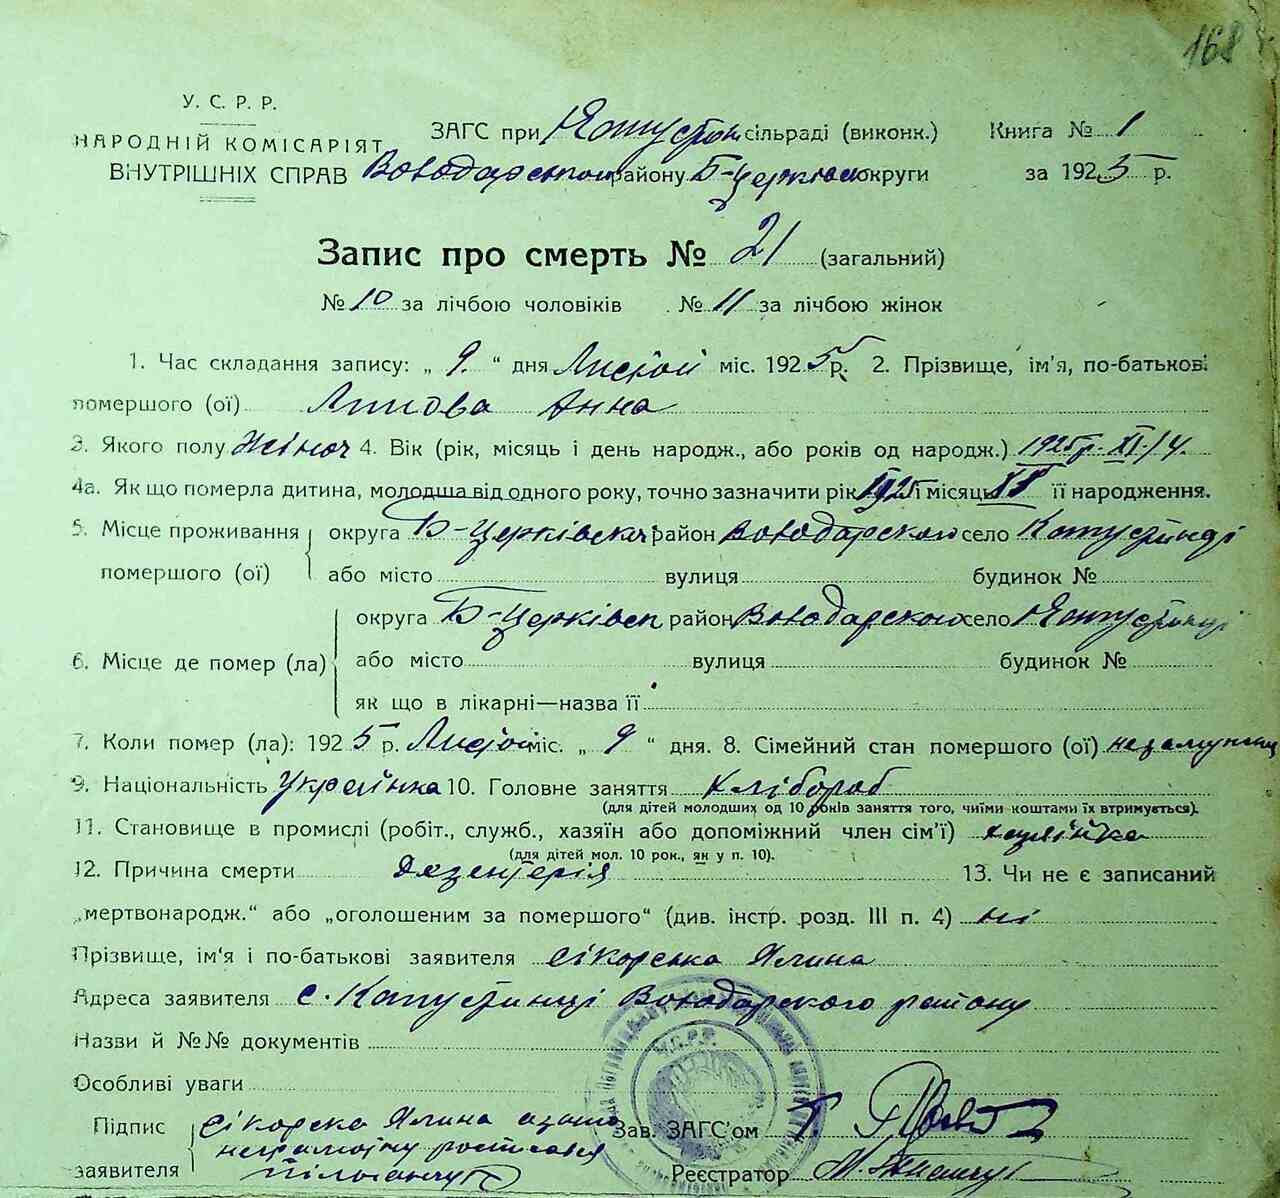 168
У. С. Р. Р.
НАРОДНІЙ КОМІСАРІЯТ
ВНУТРІШНІХ СПРАВ
ЗАГС при сільраді (виконк.) Книга № 1
Володарськом району Б-Церківськ округи за 1925 р.
Запис про смерть № 21 (загальний)
№ 10 за лічбою чоловіків № 11 за лічбою жінок
1. Час складання запису: „ 9. “ дня міс. 1925 р. 2. Прізвище, ім'я, по-батькові
помершого (ої) Анна
3. Якого полу Жіноч 4. Вік (рік, місяць і день народж., або років од народж.) 1925 р. XI-14.
4а. Як що померла дитина, молодша від одного року, точно зазначити рік 1925 і місяць її народження.
5. Місце проживання помершого (ої) округа Б-Церківська район Володарского село Капустинці
або місто вулиця будинок №
6. Місце де помер (ла) округа Б-Церківськ район Володарского село Капустинці
або місто вулиця будинок №
як що в лікарні—назва її
7. Коли помер (ла): 1925 р. міс. „ 9 “ дня. 8. Сімейний стан помершого (ої)
9. Національність Українка 10. Головне заняття Хлібороб
(для дітей молодших од 10 років заняття того, чиїми коштами їх втримується).
11. Становище в промислі (робіт., служб., хазяїн або допоміжний член сім'ї)
(для дітей мол. 10 рок., як у п. 10).
12. Причина смерти Дезентерія 13. Чи не є записаний
„мертвонародж.“ або „оголошеним за помершого“ (див. інстр. розд. III п. 4) ні
Прізвище, ім'я і по-батькові заявителя Сікорська Ялина
Адреса заявителя с. Капустинці Володарского району
Назви й №№ документів
Особливі уваги
Підпис заявителя Сікорська Ялина
Зав. ЗАГС'ом
Реєстратор
У.С.Р.Р.